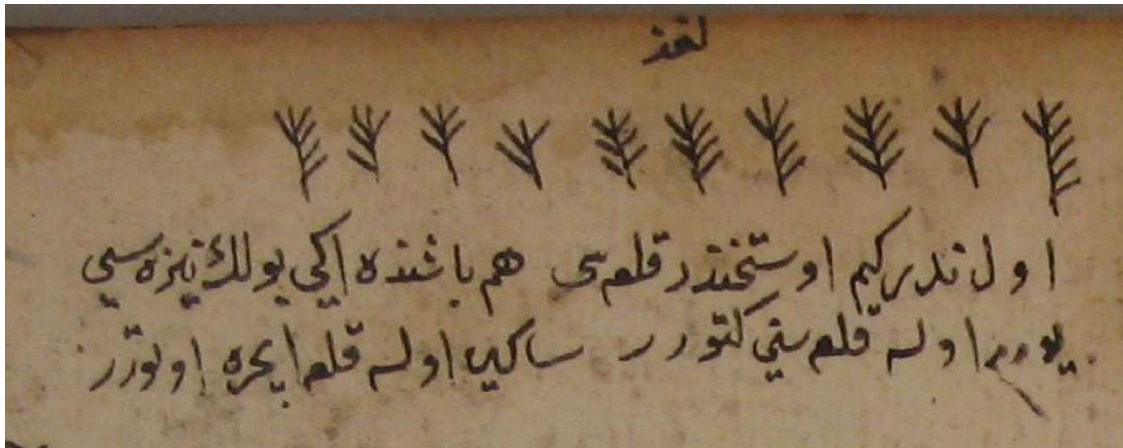 لغز
اول ندركیم اوستخندر قلعه سی هم باشنده ایكی بولك نیزه سی
یورر اولسه قلعه سنی كتورر ساكن اولسه قلعه ایچره اوتورر